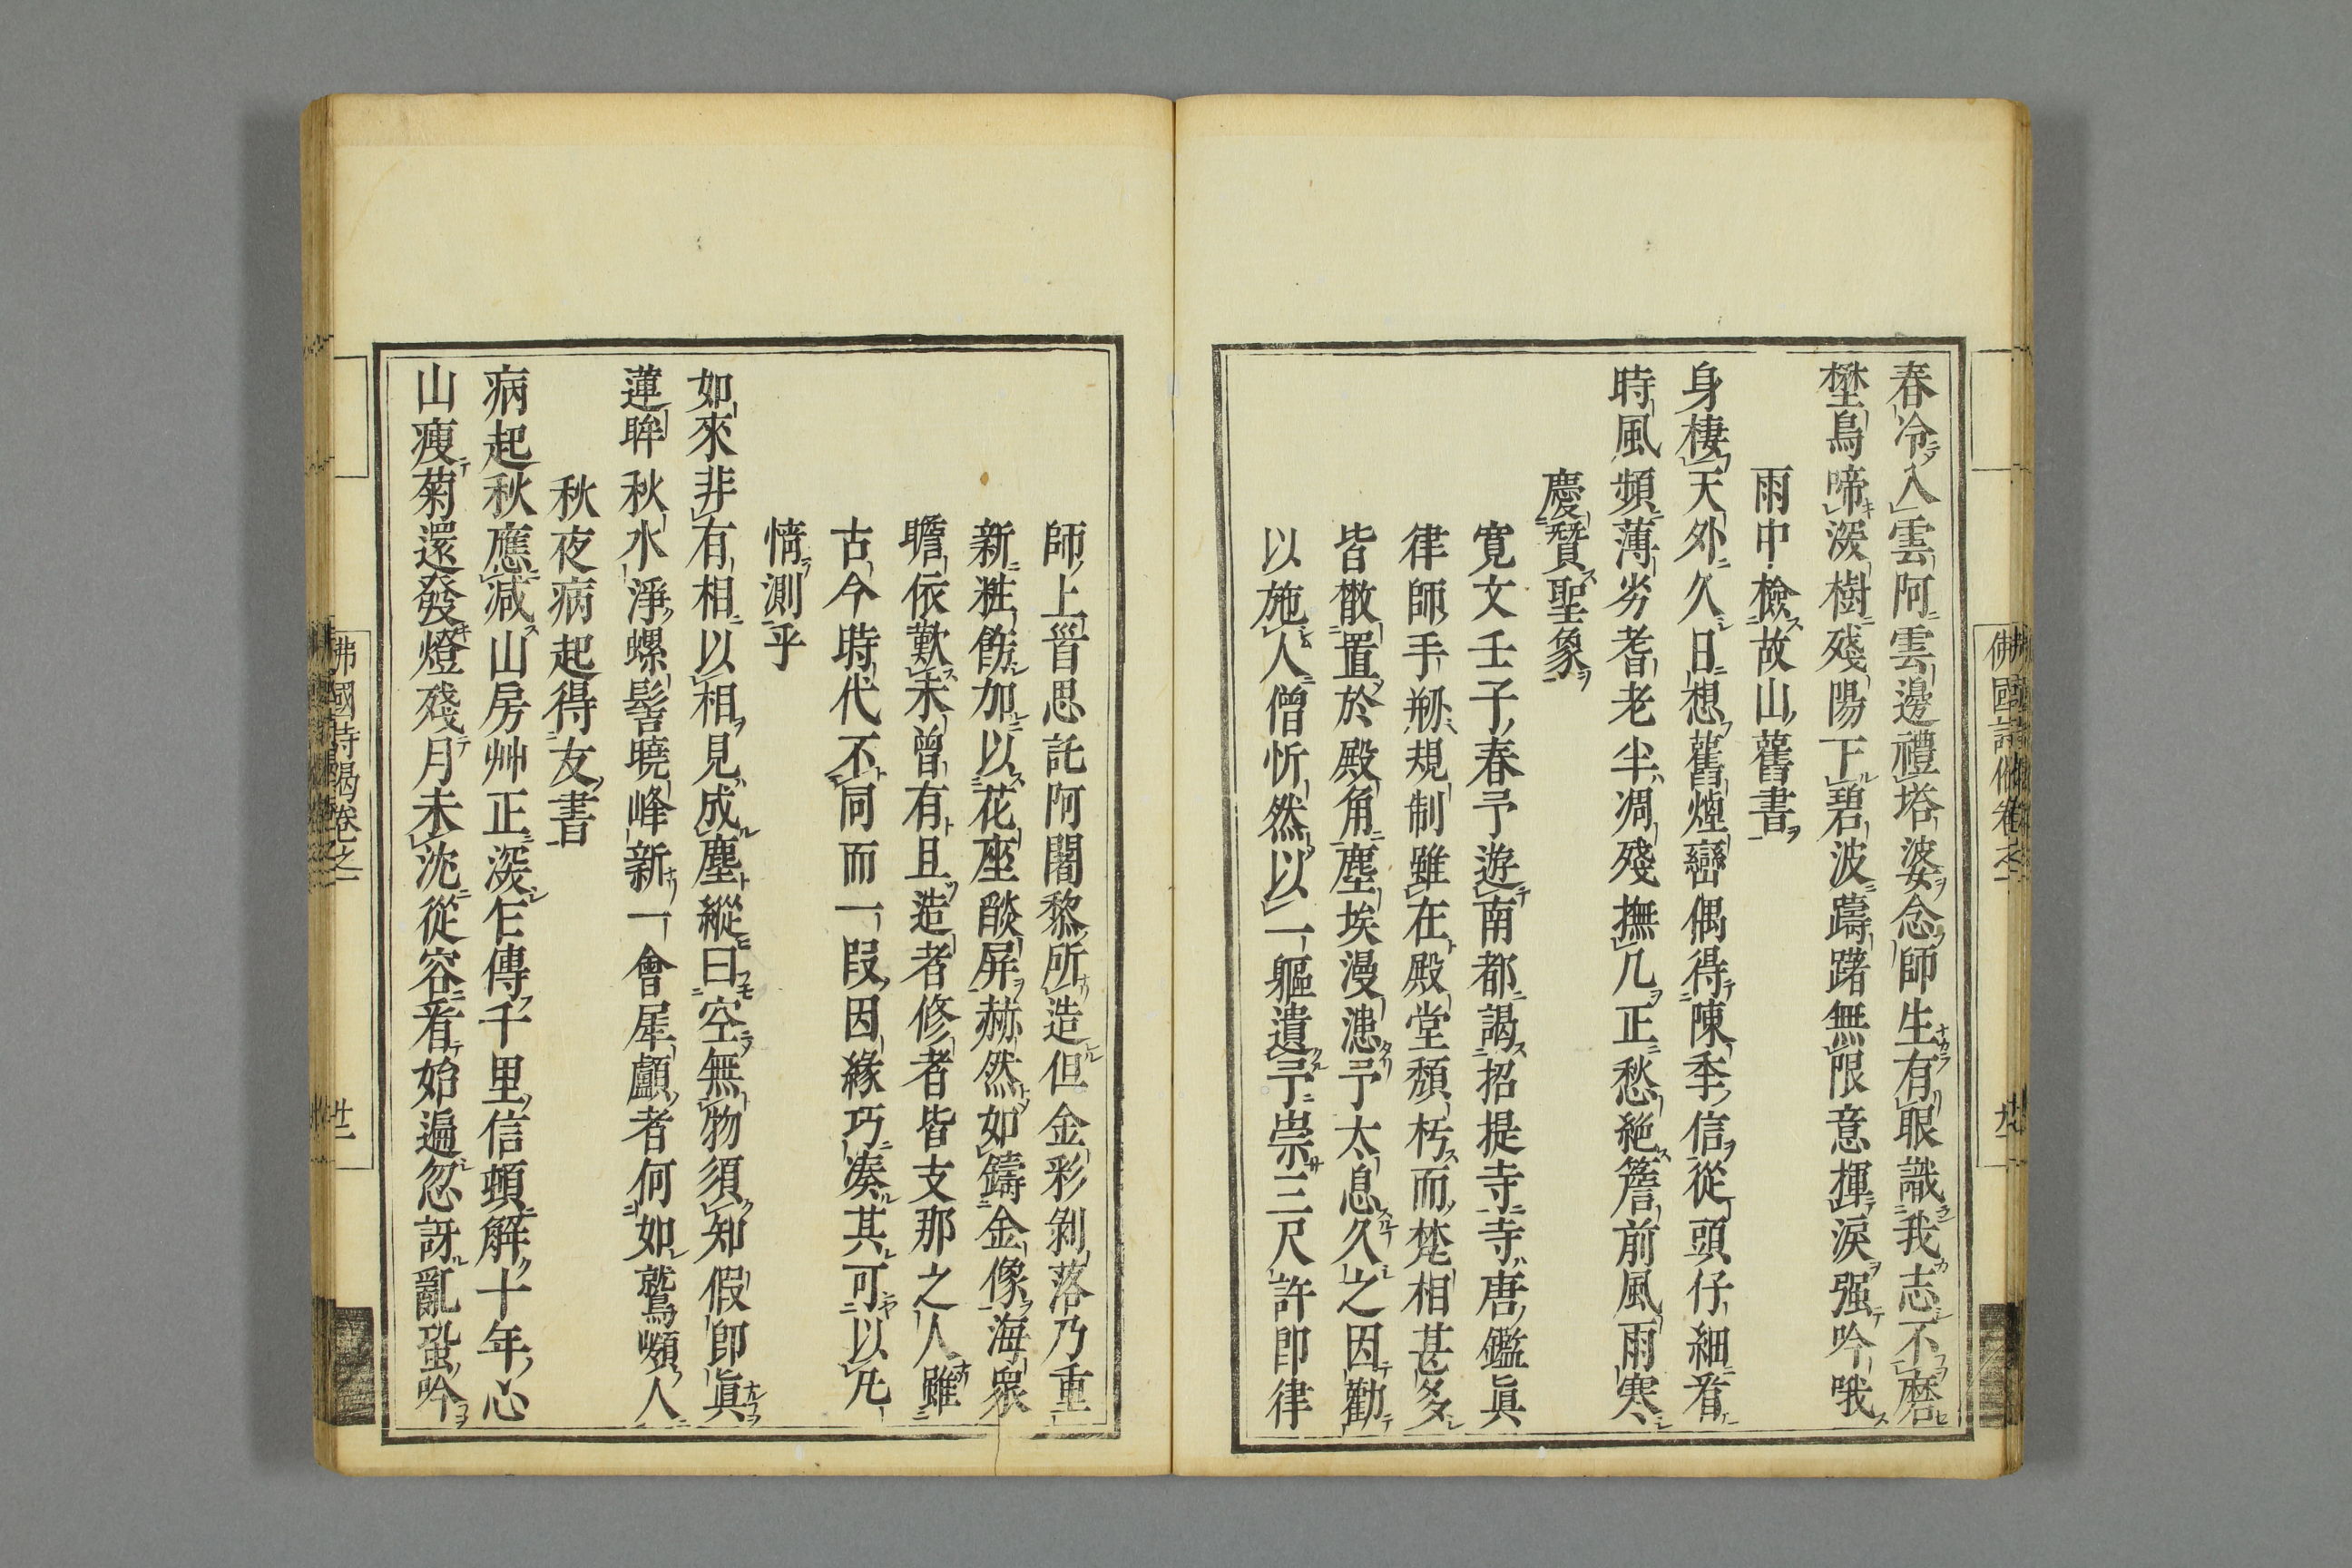 春冷入雲阿雲邊禮塔婆念師生有眼識我志不磨
埜鳥啼深樹殘陽下碧波躊躇無限意揮淚强吟哦
雨中檢故山舊書
身棲天外久日想舊煙巒偶得陳季信從頭仔細看
時風頻薄劣耆老半凋殘撫几正愁絶簷前風雨寒
慶贊聖象
寛文壬子春予遊南都謁招提寺寺唐鑑眞
律師手剏規制雖在殿堂頽朽而梵相甚多
皆散置於殿角塵埃漫漶予太息久之因勸
以施人僧忻然以一軀遺予崇三尺許卽律
師上首思託阿闍黎所造但金彩剝落乃重
新粧餝加以花座燄屏赫然如鑄金像海衆
瞻依歎未曾有且造者修者皆支那之人雖
古今時代不同而一叚因緣巧湊其可以凡
情測乎
如來非有相以相見成塵縱曰空無物須知假卽眞
蓮眸秋水淨螺髻曉峰新一會犀顱者何如鷲嶺人
秋夜病起得友書
病起秋應減山房艸正深乍傳千里信頓解十年心
山瘦菊還發燈殘月未沈從容看始遍忽訝亂蛩吟
佛國詩偈卷之一
佛國詩偈卷之一
廿